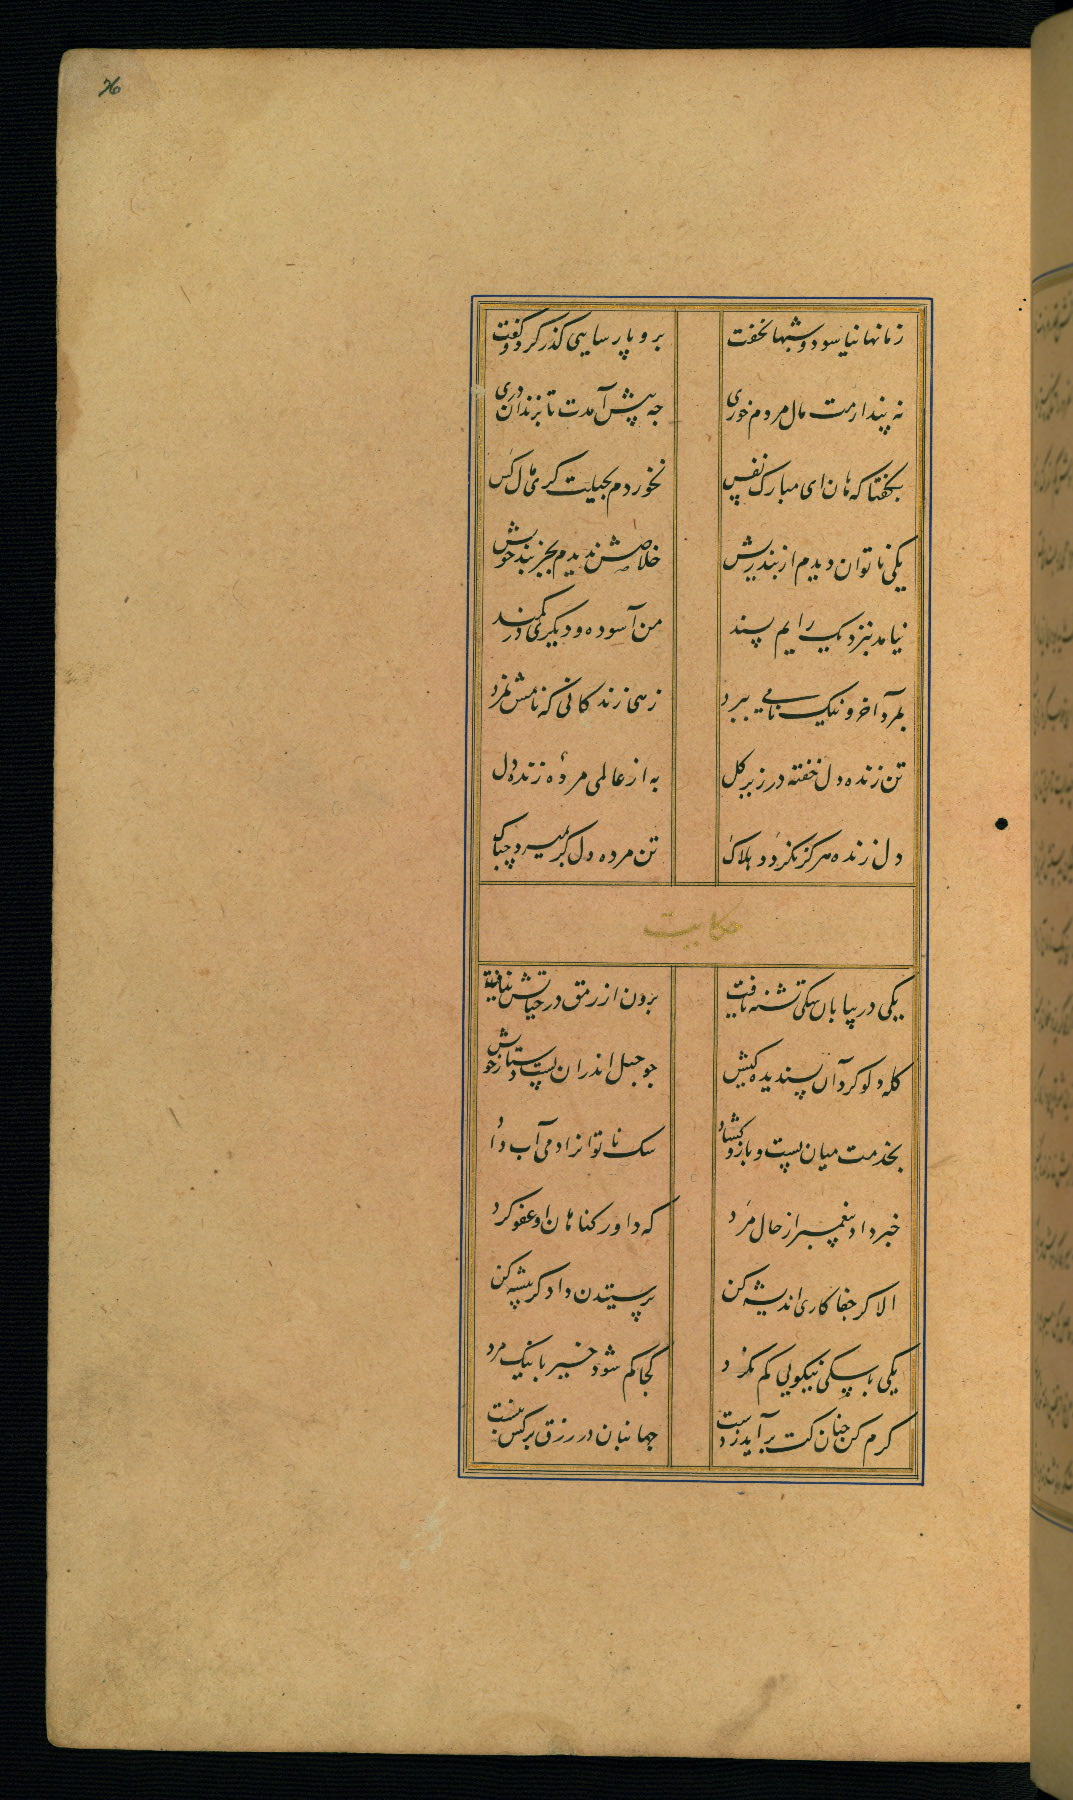 26
زمانها نیاسود و شبها نخفت برو پارسایی کذر کرد و گفت
نه پندارمت مال مردم خوری جه پیش آمدت تا بزندان دری
بکفتا که هان ای مبارک نفس نخوردم بحیلت کری مال کس
یکی ناتوان دیدم از بند ریش خلاصش ندیدم بجز بند خویش
نیامد بنزدیک رایم پسند من آسوده و دیکری در کمند
بمرد آخر و نیک نامی ببرد زهی زندکانی که نامش نمرد
تن زنده دل خفته در زیر کل به از عالمی مردهٔ زنده دل
دل زنده هرکز نکردد هلاک تن مرده دل کر بمیرد چه باک
حکایت
یکی در بیابان سکی تشنه یافت برون از رمق در حیاتش نیافت
کله دلو کرد آن پسندیده کیش جو حبل اندران بست دستار خویش
بخدمت میان بست و بازو کشاد سک ناتوانرا دمی آب داد
خبر داد پیغمبر از حال مرد که داور کناهان او عفو کرد
الا کر جفا کاری اندیشه کن پرستیدن دادکر پیشه کن
یکی با سکی نیکویی کم نکرد کجا کم شود خیر با نیک مرد
کرم کن چنان کت برآید ز دست جهانبان در رزق بر کس نبست